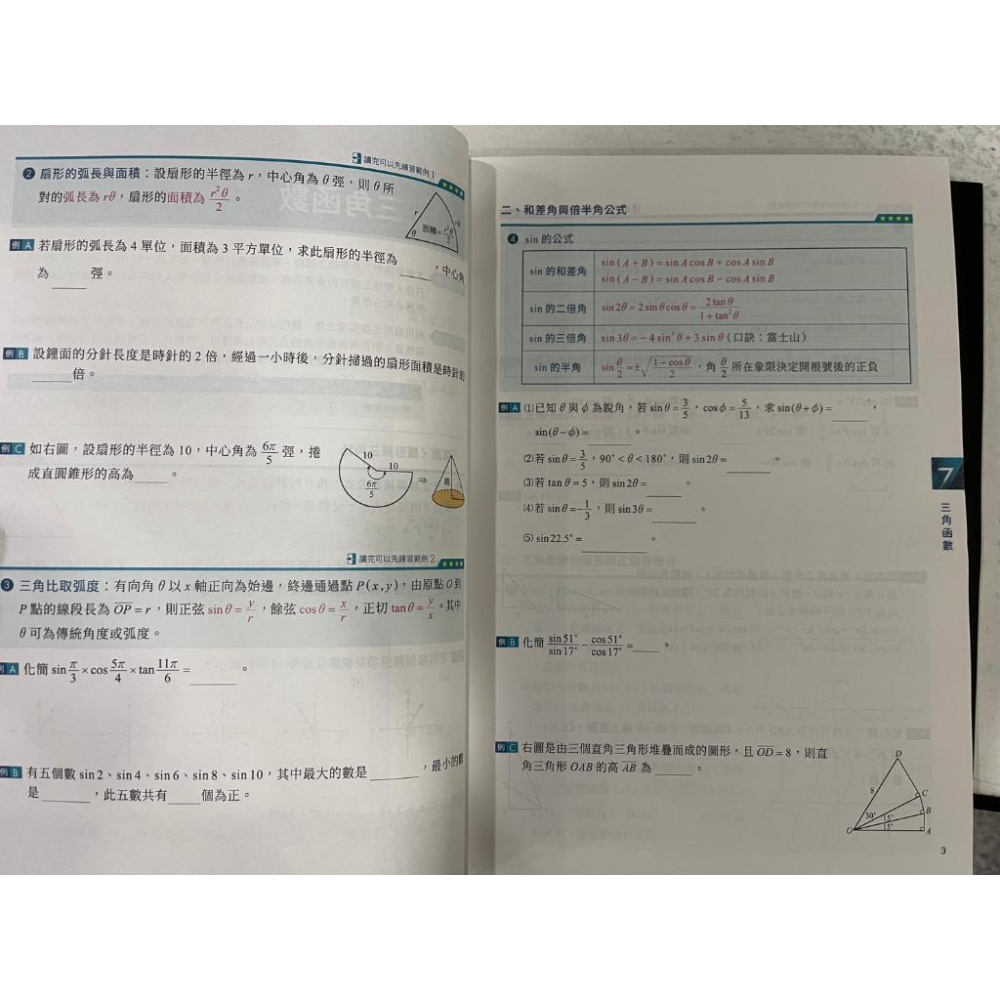 讀完可以先練習範例1
❷ 扇形的弧長與面積：設扇形的半徑為 r，中心角為 θ 弳，則 θ 所
對的弧長為 rθ，扇形的面積為 r²θ/2。
r
θ
面積=r²θ/2
例A 若扇形的弧長為 4 單位，面積為 3 平方單位，求此扇形的半徑為____，中心角
為____弳。
例B 設鐘面的分針長度是時針的 2 倍，經過一小時後，分針掃過的扇形面積是時針的
____倍。
例C 如右圖，設扇形的半徑為 10，中心角為 6π/5 弳，捲
成直圓錐形的高為____。
10
10
6π/5
⇒
高
讀完可以先練習範例2
❸ 三角比取弧度：有向角 θ 以 x 軸正向為始邊，終邊通過點 P(x,y)，由原點 O 到
P 點的線段長為 OP=r，則正弦 sinθ=y/r，餘弦 cosθ=x/r，正切 tanθ=y/x。其中
θ 可為傳統角度或弧度。
例A 化簡 sin π/3 × cos 5π/4 × tan 11π/6 = ____。
例B 有五個數 sin 2、sin 4、sin 6、sin 8、sin 10，其中最大的數是____，最小的數
是____，此五數共有____個為正。
二、和差角與倍半角公式
❹ sin 的公式
sin 的和差角
sin(A+B)=sinAcosB+cosAsinB
sin(A−B)=sinAcosB−cosAsinB
sin 的二倍角 sin2θ=2sinθcosθ=2tanθ/(1+tan²θ)
sin 的三倍角 sin3θ=−4sin³θ+3sinθ（口訣：富士山）
sin 的半角 sin θ/2=±√((1−cosθ)/2)，角 θ/2 所在象限決定開根號後的正負
例A ⑴已知 θ 與 φ 為銳角，若 sinθ=3/5，cosφ=5/13，求 sin(θ+φ)=____，
sin(θ−φ)=____。
⑵若 sinθ=3/5，90°<θ<180°，則 sin2θ=____。
⑶若 tanθ=5，則 sin2θ=____。
⑷若 sinθ=−1/3，則 sin3θ=____。
⑸ sin22.5°=____。
7
三角函數
例B 化簡 sin51°/sin17° − cos51°/cos17° =____。
例C 右圖是由三個直角三角形堆疊而成的圖形，且 OD=8，則直
角三角形 OAB 的高 AB 為____。
D
8
C
30°
15°
B
15°
O
A
3